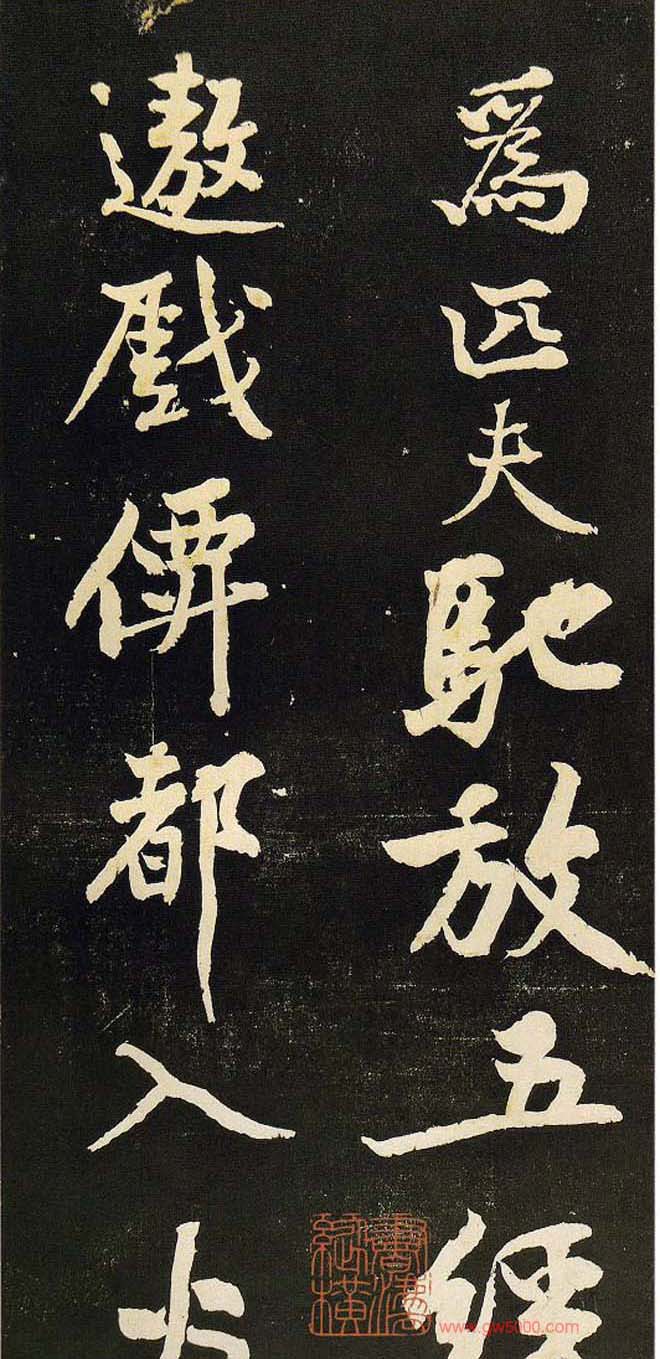 爲匹夫馳放五經
遨戲僊都入火
www.gw5000.com